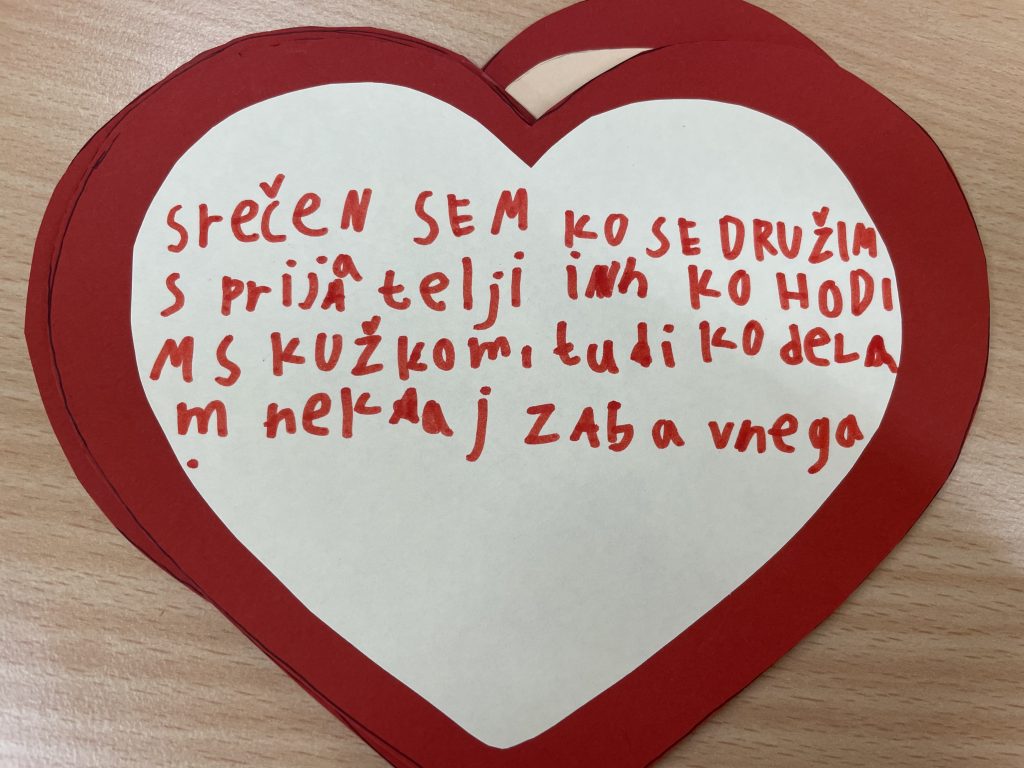 srečeN SEM KO SE DRUŽIM
s prijatelji iNh KO HODI
M S KUŽkom, tudi ko deLa
m nekaj ZAba vnega
.